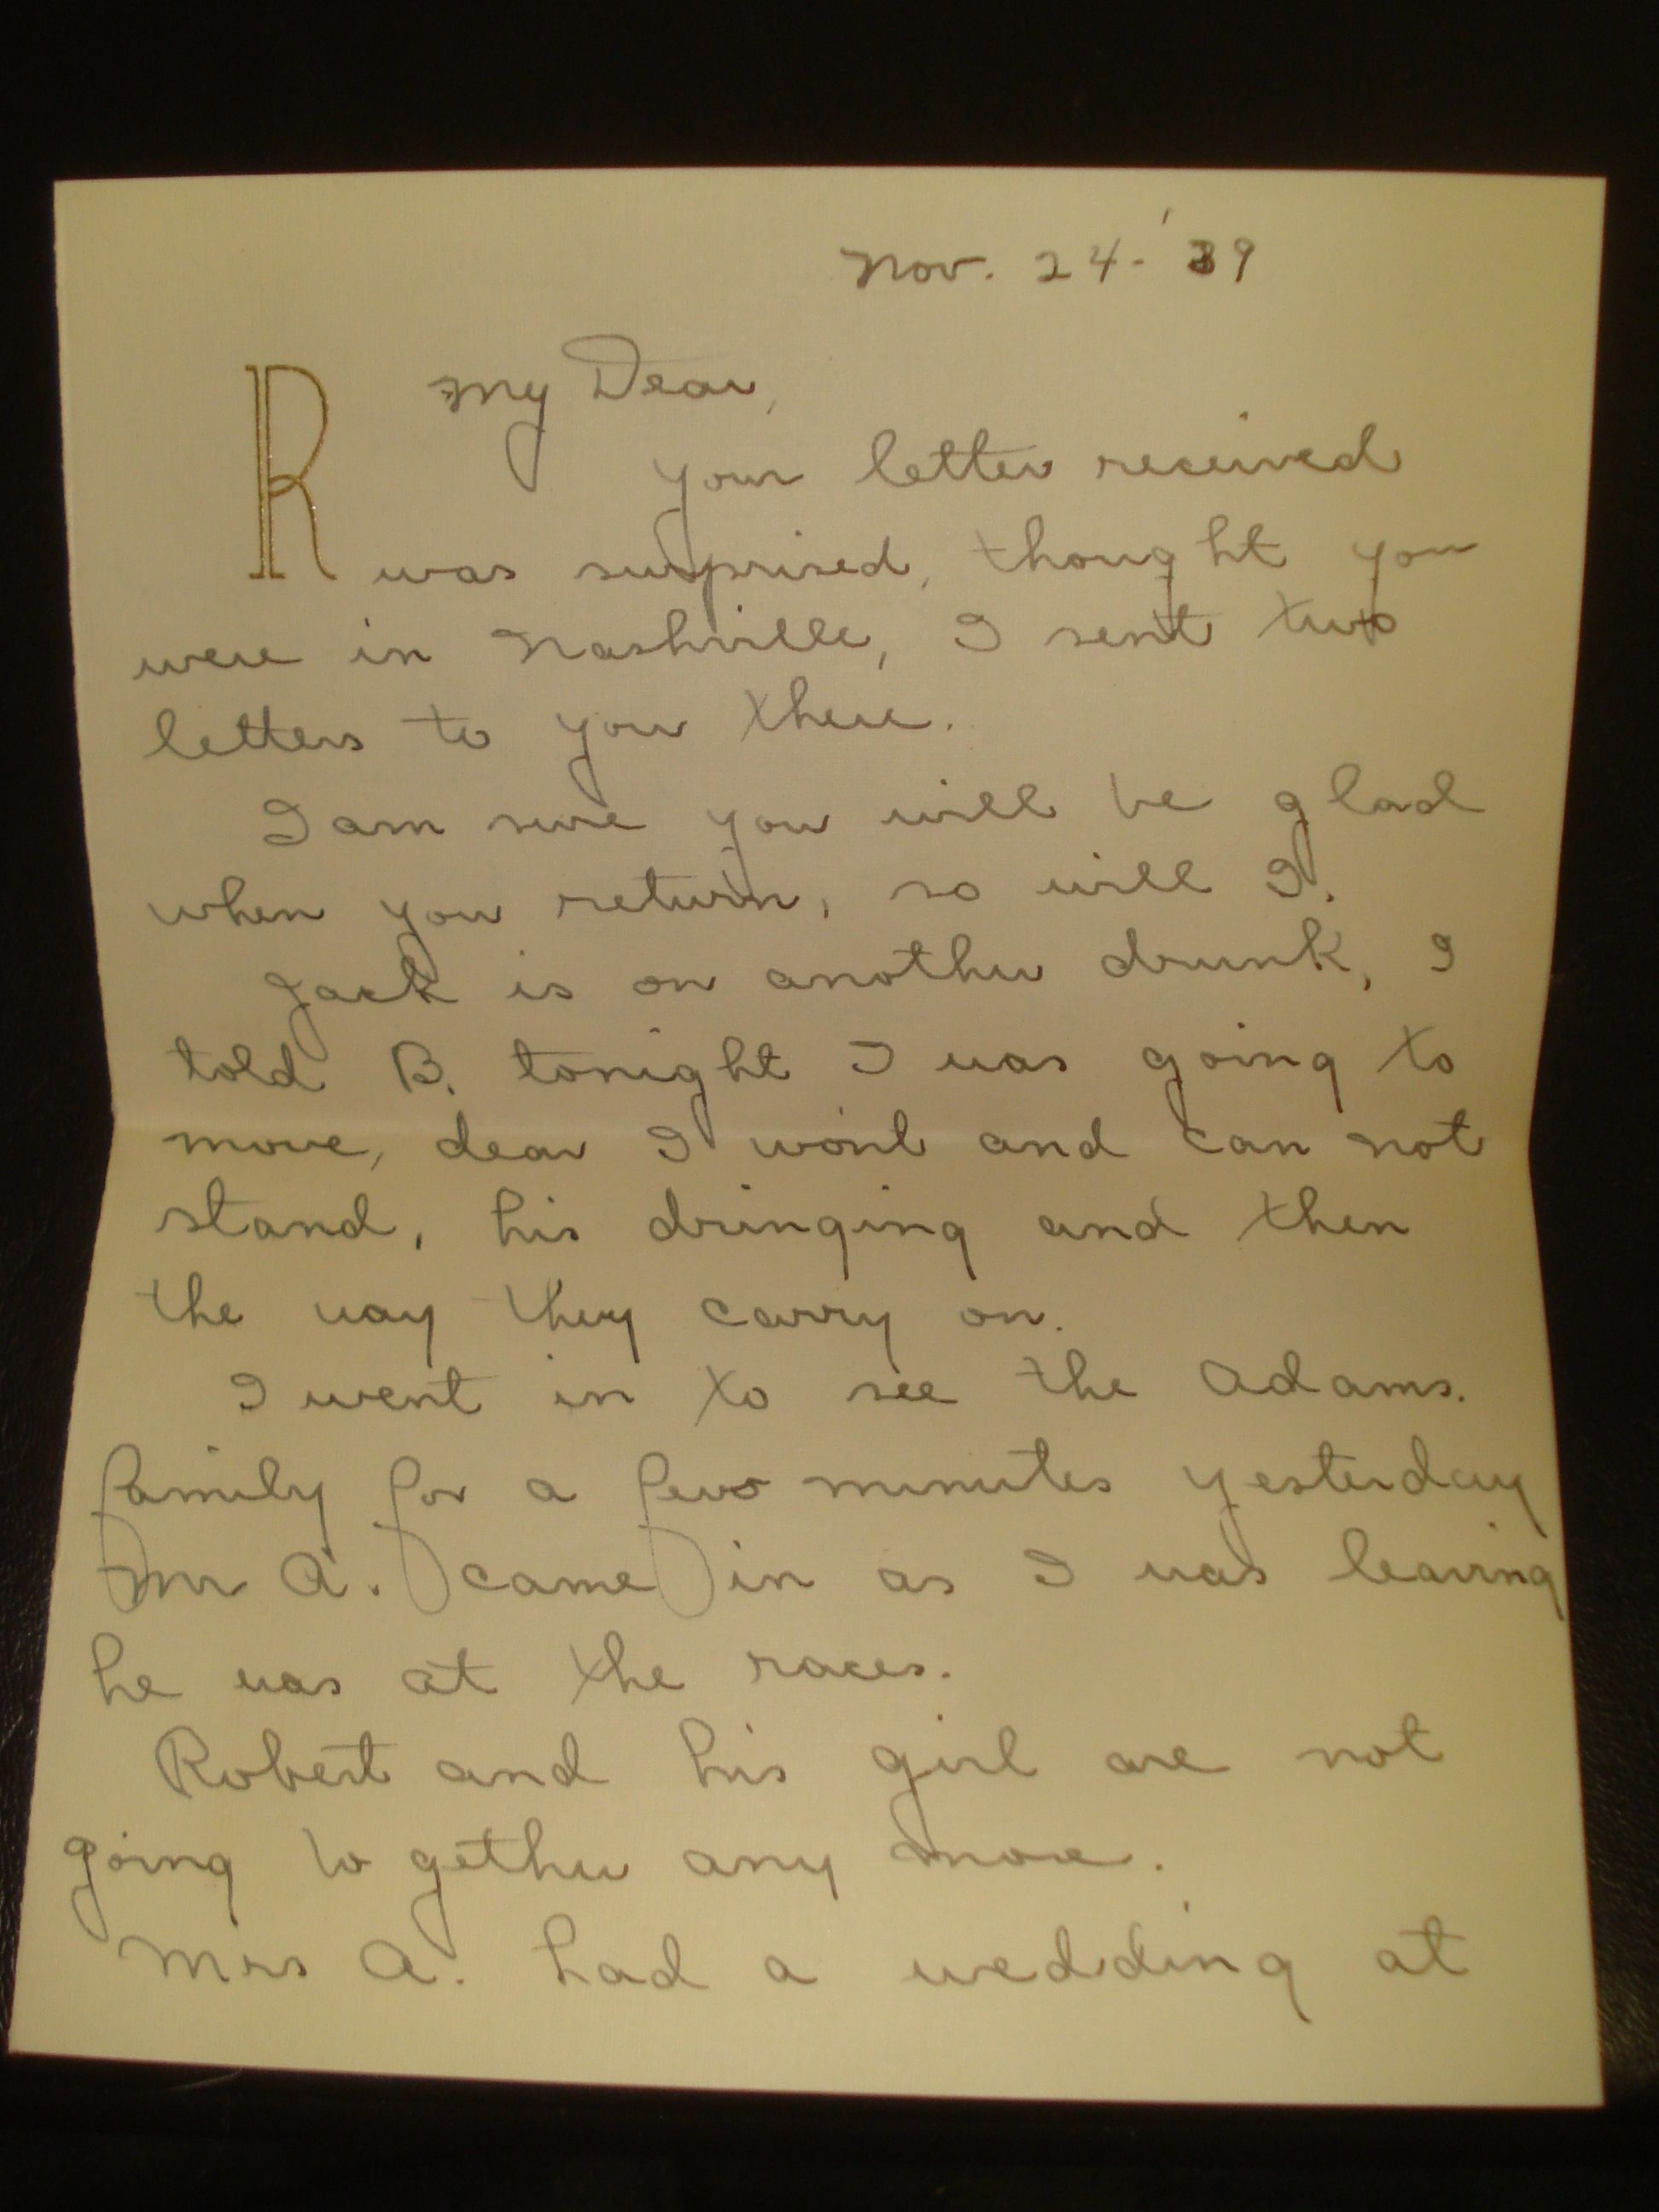 Nov. 24-'39
R
My Dear,
your letter received
was surprised, thought you
were in Nashville, I sent two
letters to you there.
I am sure you will be glad
when you return, so will I.
Jack is on another drunk, I
told B. tonight I was going to
move, dear I won't and can not
stand, his dringing and then
the way they carry on.
I went in to see the Adams.
family for a few minutes yesterday
Mr A. came in as I was leaving
he was at the races.
Robert and his girl are not
going to gether any more.
Mrs A. had a wedding at